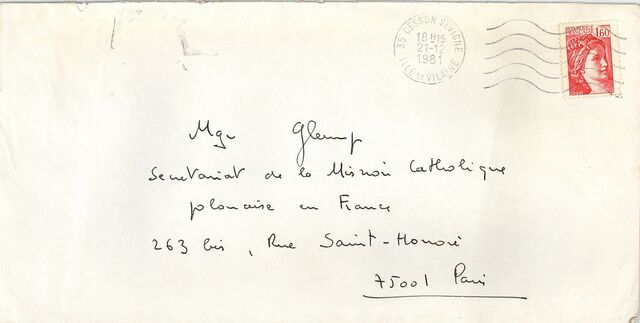 35 CESSON SEVIGNE
18H15
21-12
1981
ILLE ET VILAINE
1,60
Mgr Glemp
Secretariat de la Mission Catholique
polonaise en France
263 bis, Rue Saint-Honoré
75001 Paris